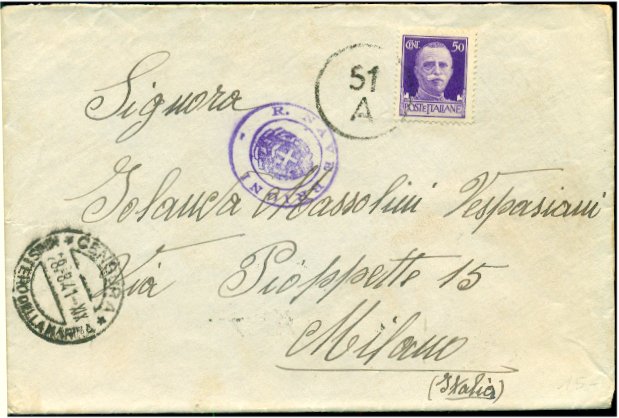 CENT. 50
POSTE ITALIANE
51
A
R. NAVE BRIONI
Signora
Iolanda Massolini Vespasiani
Via Pioppette 15
Milano
(Italia)
MINISTERO DELLA MARINA
28-8-41-XIX
15-